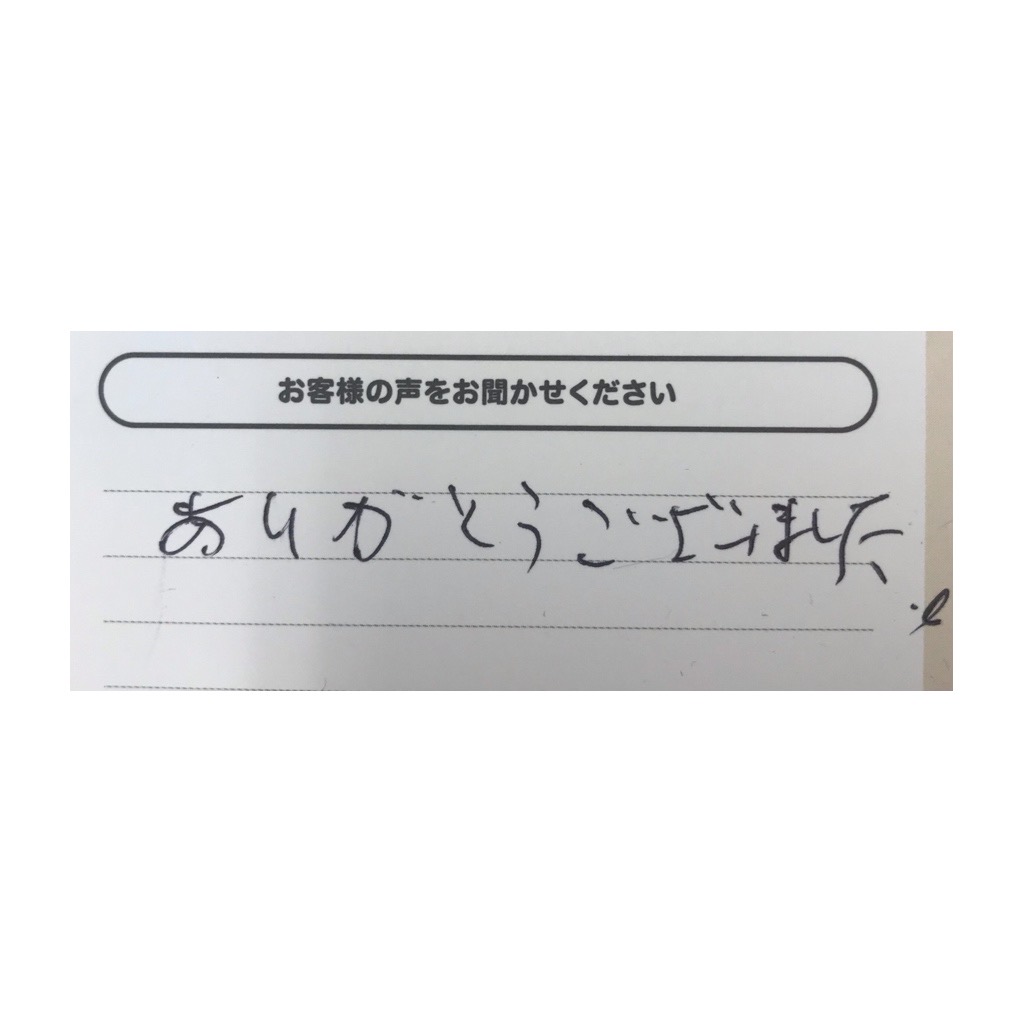 お客様の声をお聞かせください
ありがとうございました